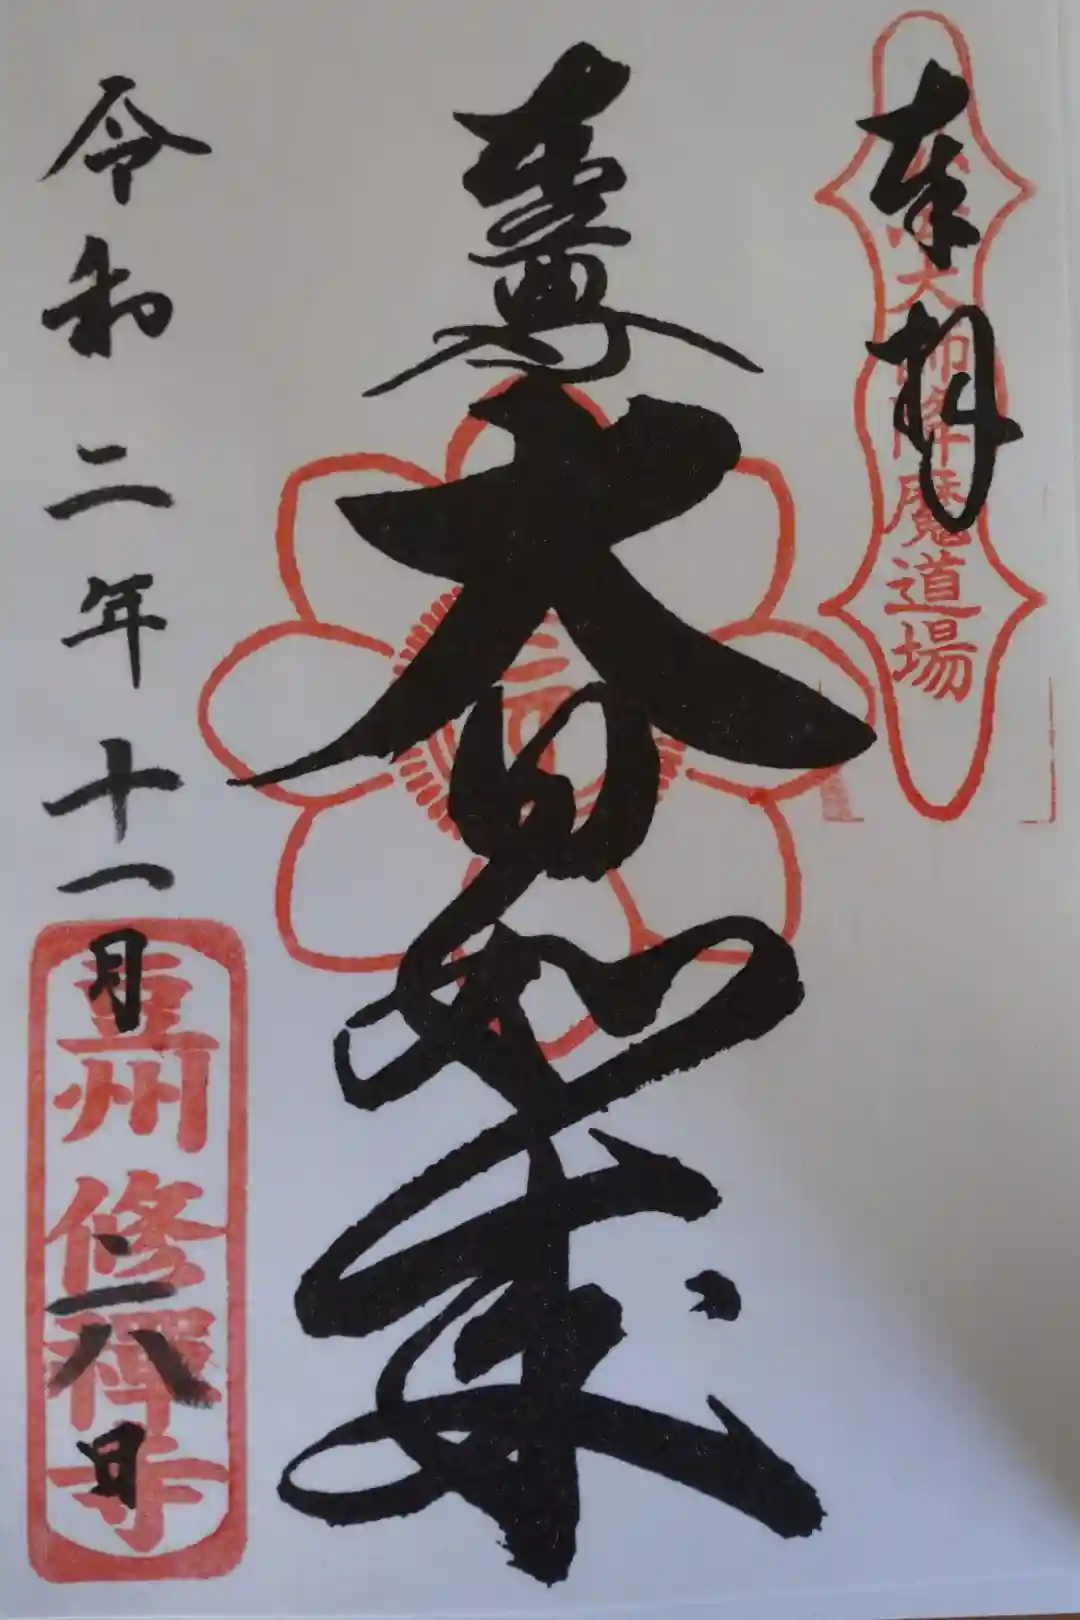 奉拝
大師降魔道場
尊
大日如来
令和二年十一月二八日
豆州修禅寺